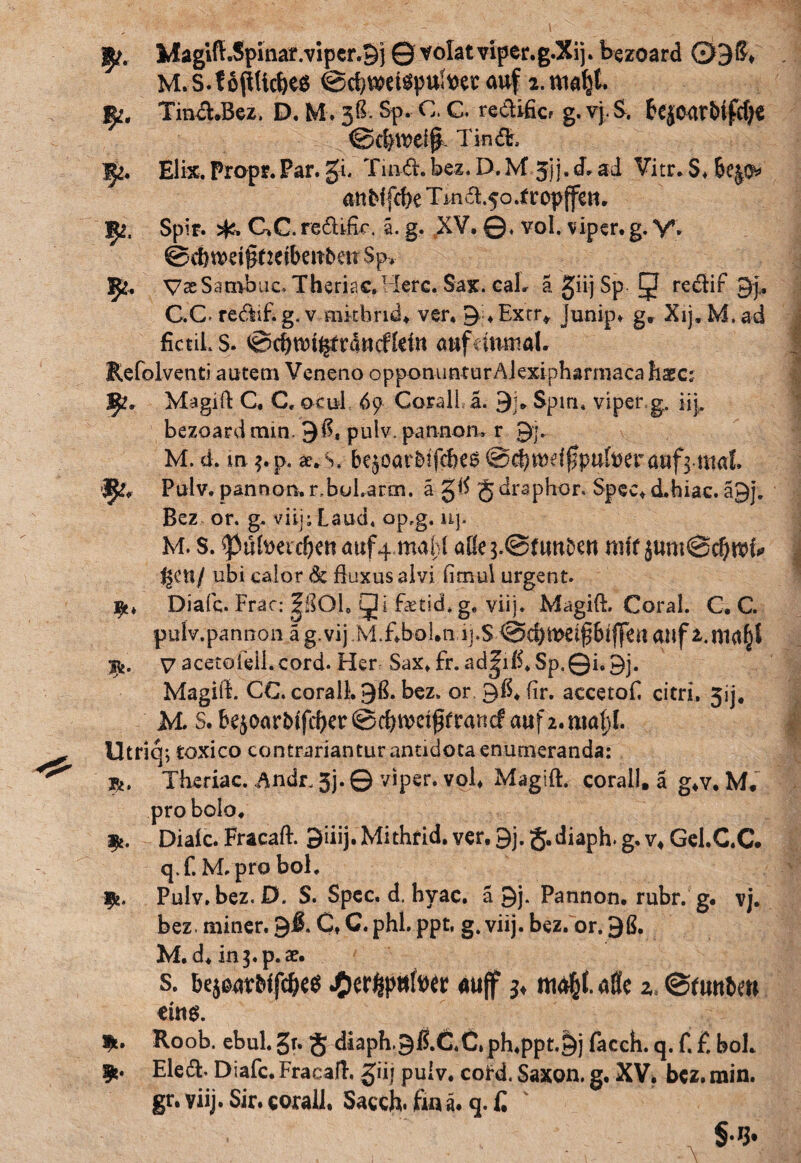 ℞. Magist.Spinar.viper.℈j 🜔 volat viper.g.Xij. bezoard ☉℈ß.
M.S.köstliches Schweispulver auf 2.mahl.
℞. Tinct.Bez. D. M. ʒß. Sp. C. C. rectific. g. vj. S. bezoardische
Schweiß. Tinct.
℞. Elix. Propr. Par. ʒi. Tinct. bez. D. M ʒjj. d. ad Vitr. S. bezo⸗
andische Tinct.50.tropffen.
℞. Spir. ✱. C.C. rectific. ā. g. XV. 🜔. vol. viper. g. V.
Schweißtreibenden Sp.
℞. ▽æ Sambuc. Theriac. Herc. Sax. cal. ā ʒiij Sp. 🜿 rectif ℈j.
C.C. rectif. g. v mithrid. ver. ℈. Extr. Junip. g. Xij. M. ad
fictil. S. Schwitzträncklein auf einmal.
Resolventi autem Veneno opponuntur Alexipharmaca hæc:
℞. Magist C. C. ocul 69 Corall. ā. ℈j. Spin. viper. g. iij.
bezoard min. ℈ß. pulv. pannon. r ℈j.
M. d. in 3. p. æ. S. bezoardisches Schweißpulver auf 3 mal.
℞. Pulv. pannon. r. bol.arm. ā ʒß ♁ draphor. Spec. d.hiac. ā℈j.
Bez or. g. viij: Laud. op.g. iij.
M. S. Pülverchen auf 4. mahl alle 3. Stunden mit zum Schwi⸗
tzen/ ubi calor & fluxus alvi simul urgent.
℞. Diasc. Frac: ℥ßOl. 🜿i fætid. g. viij. Magist. Coral. C. C.
pulv.pannon ā g.vij.M.f.bol.n ij.S Schweißbissen auf 2. mahl
℞. ▽ acetosell. cord. Her Sax. fr. ad℥iß. Sp.🜔i. ℈j.
Magist. CC. corall. ℈ß. bez. or ℈ß. sir. accetos. citri. ʒij.
M. S. bezoardischer Schweißtranck auf 2. mahl.
Utriq; toxico contrariantur antidota enumeranda:
℞. Theriac. Andr. ʒj. 🜔 viper. vol. Magist. corall. ā g.v. M.
pro bolo.
℞. Diasc. Fracast. ℈iiij. Mithrid. ver. ℈j. ♁.diaph. g. v. Gel.C.C.
q.f. M. pro bol.
℞. Pulv. bez. D. S. Spec. d. hyac. ā ℈j. Pannon. rubr. g. vj.
bez. miner. ℈ß. C. C. phl. ppt. g. viij. bez. or. ℈ß.
M. d. in 3. p. æ.
S. bezoardisches Hertzpulver auff 3. mahl. alle 2. Stunden
eins.
℞. Roob. ebul. ʒr. ♁ diaph.℈ß.C.C.ph.ppt.℈j sacch. q. s. f. bol.
℞. Elect. Diasc. Fracast. ʒiij pulv. cord. Saxon. g. XV. bez. min.
gr. viij. Sir. corall. Sacch. fin ā. q. s.
§.13.